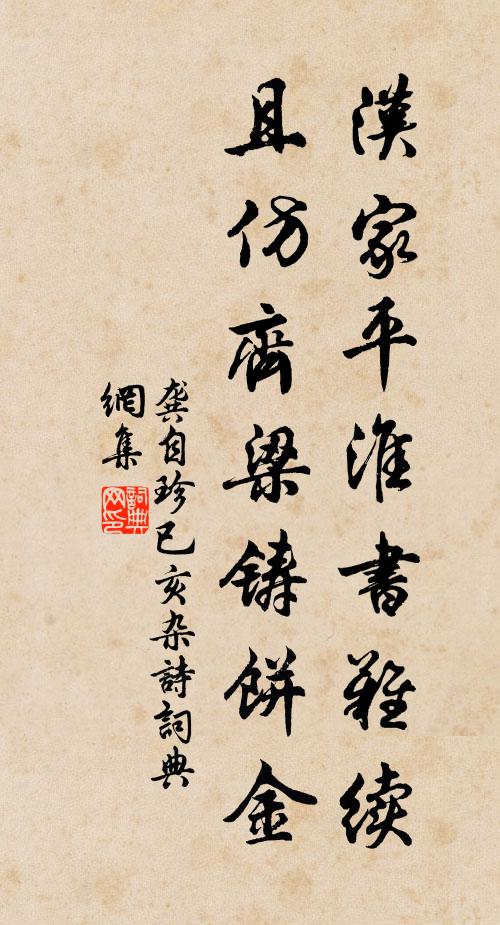 漢家平淮書難续
且仿齊梁鋳餅金
龚自珍已亥杂詩詞典
網集
詞典网印